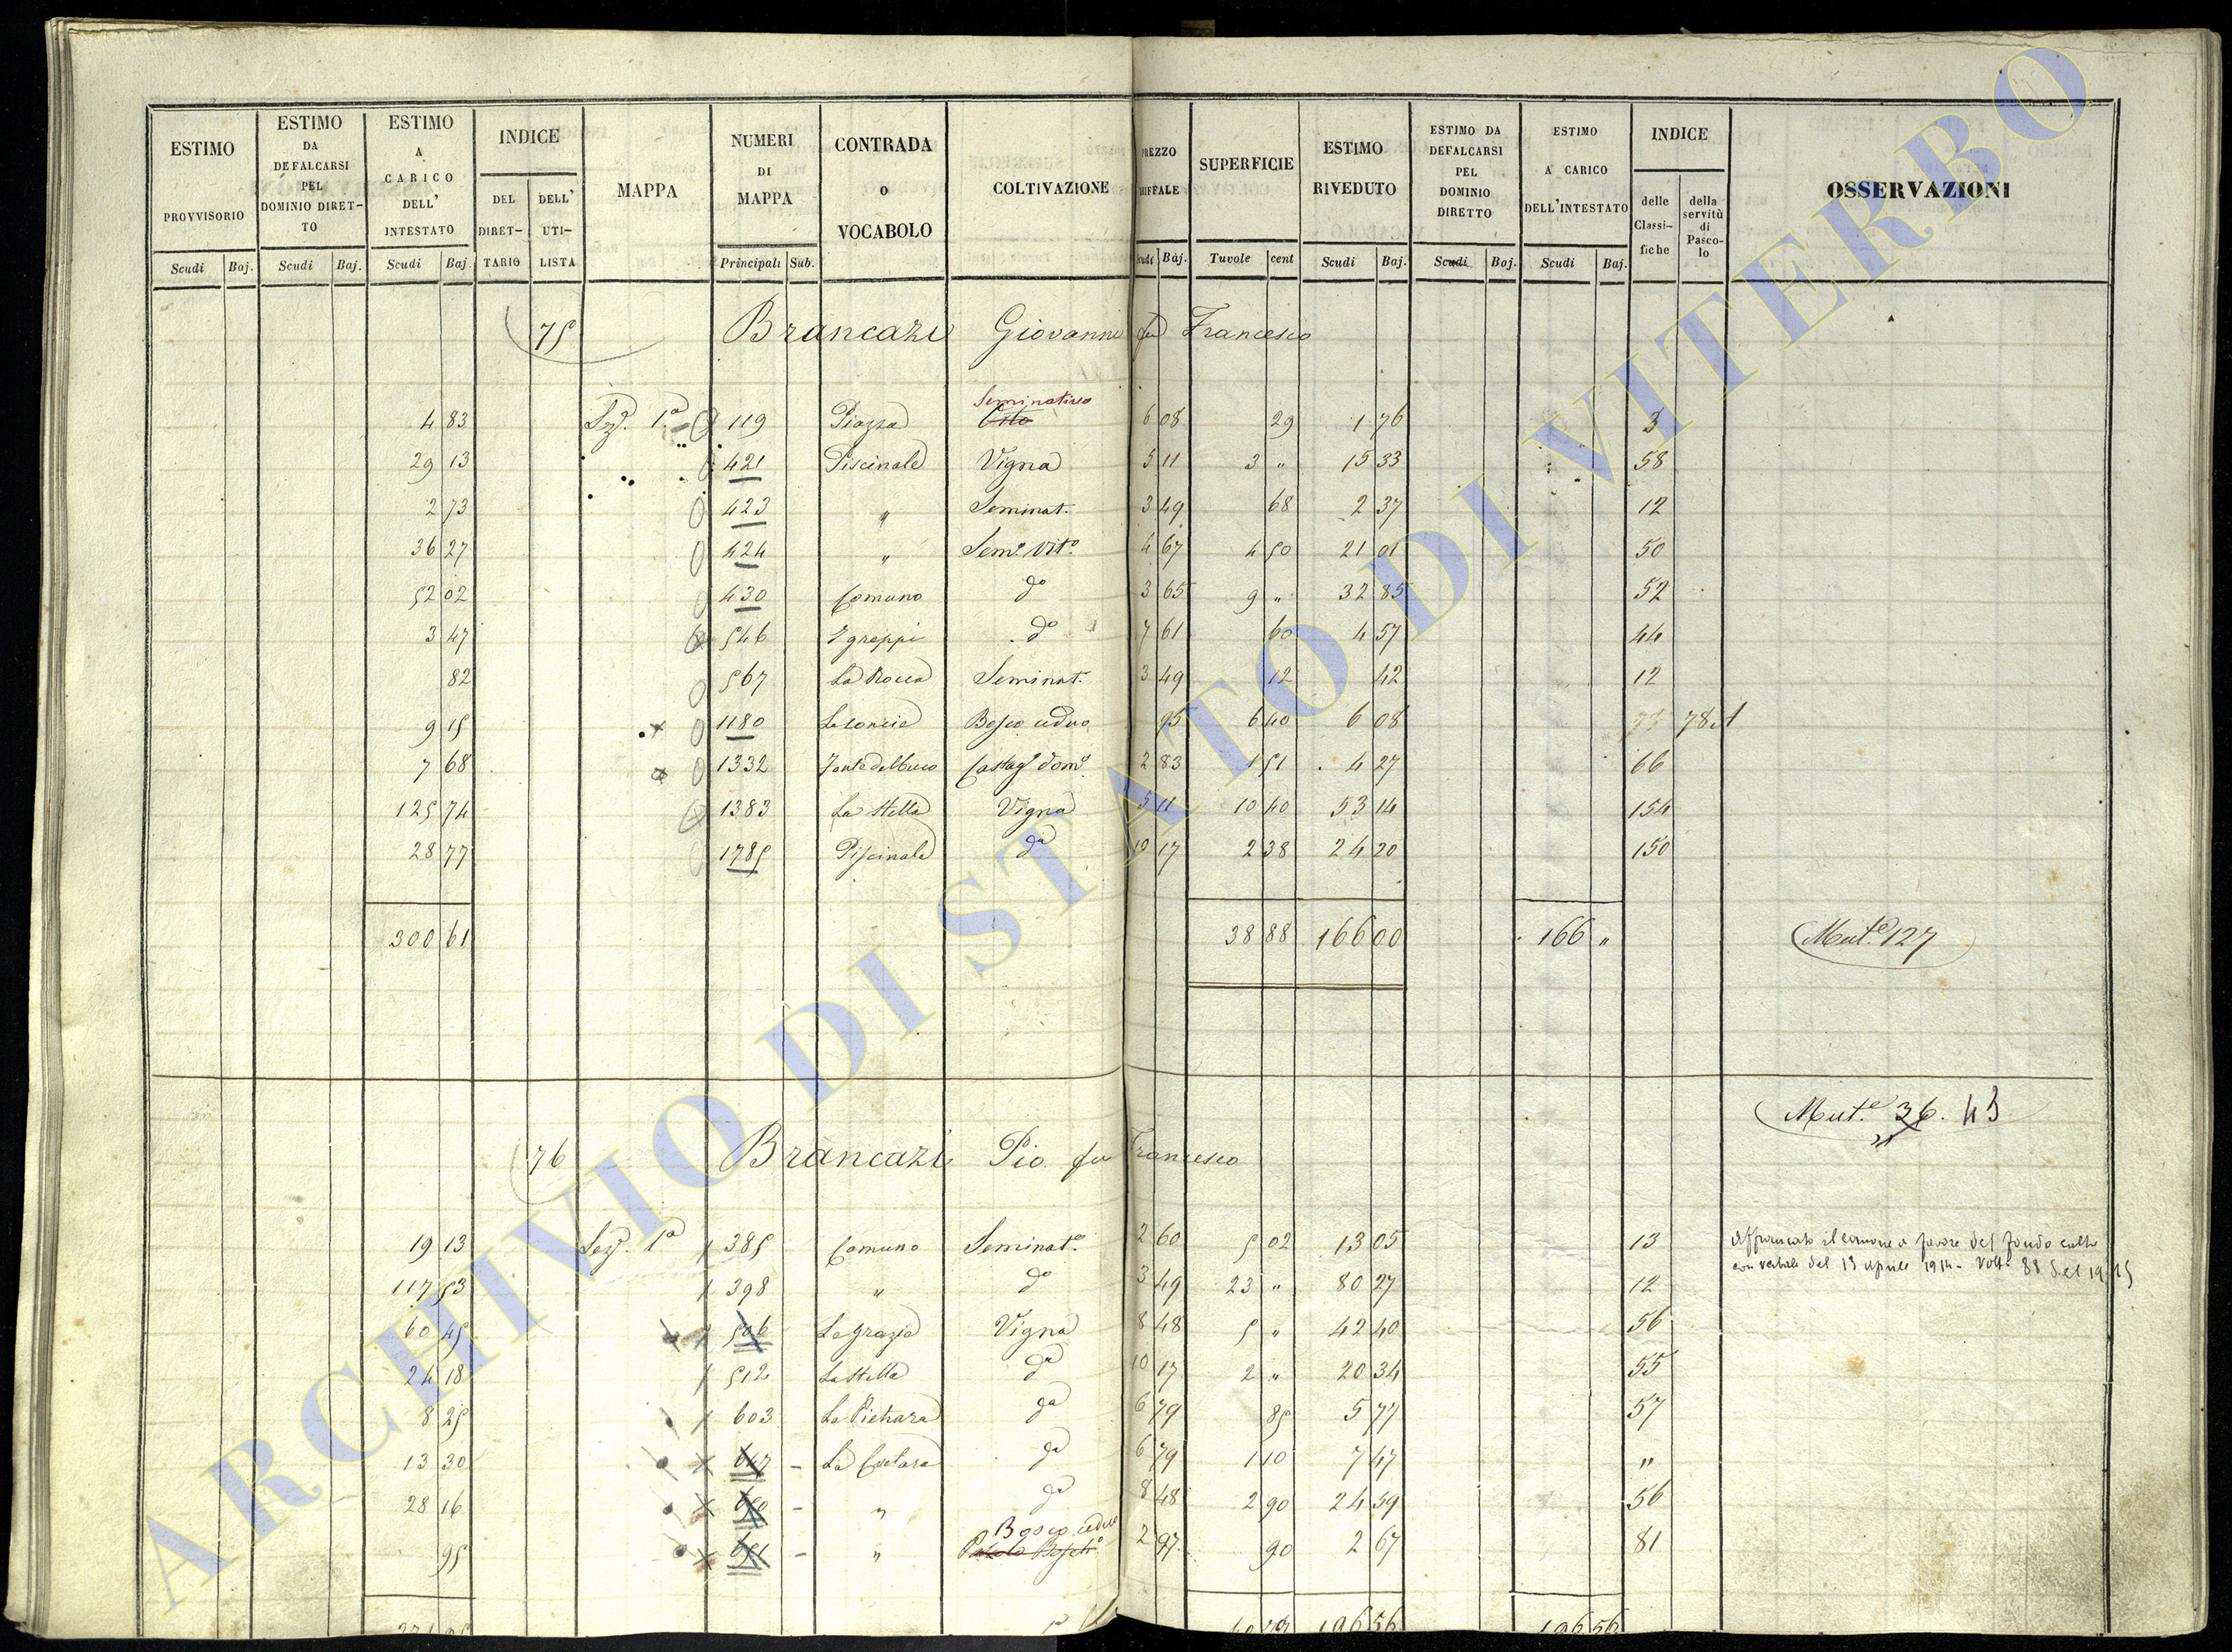 ESTIMO PROVVISORIO | ESTIMO DA DEFALCARSI PEL DOMINIO DIRETTO | ESTIMO A CARICO DELL' INTESTATO | INDICE | MAPPA | NUMERI DI MAPPA | CONTRADA o VOCABOLO | COLTIVAZIONE | PREZZO | SUPERFICIE | ESTIMO RIVEDUTO | ESTIMO DA DEFALCARSI PEL DOMINIO DIRETTO | ESTIMO A CARICO DELL'INTESTATO | INDICE | OSSERVAZIONI
DEL DIRETTARIO | DELL' UTILISTA | delle Classifiche | della servitù di Pascolo
Scudi | Baj. | Scudi | Baj. | Scudi | Baj. | Principali | Sub. | Baj. | Tavole | cent | Scudi | Baj. | Scudi | Baj. | Scudi | Baj.
75 Brancazi Giovanni fu Francesco
Seminativo
4 83 Sez. 1ª 119 Piazza Orto 6 08 29 1 76 3
29 13 421 Piscinale Vigna 5 11 3 " 15 33 58
2 73 423 " Seminat. 3 49 68 2 37 12
36 27 424 " Semo Vito 4 67 4 50 21 01 50
52 02 430 Comuno do 3 65 9 " 32 85 52
3 47 546 I greppi do 7 61 60 4 57 44
82 567 La Rocca Seminat. 3 49 12 42 12
9 15 1180 Bosco ceduo 95 6 40 6 08 78
7 68 1332 Castago domo 2 83 1 51 4 27 66
125 74 1383 La Stella Vigna 5 11 10 40 53 14 154
28 77 1785 Piscinale da 10 17 2 38 24 20 150
300 61 38 88 166 00 166 " Mut.e 127
Mut.e 36. 43
76 Brancazi Pio fu Francesco
19 13 Sez. 1ª 385 Comuno Seminato 2 60 5 02 13 05 13 Affrancato il canone a favore del fondo culto
117 53 398 " do 3 49 23 " 80 27 12 con verbale del 13 aprile 1914 - Vol. 88
60 45 506 Le grazie Vigna 8 48 5 " 42 40 56
24 18 512 La Stella da 10 17 2 " 20 34 55
8 25 603 La Pietrara da 6 79 85 5 77 57
13 30 647 da 6 79 1 10 7 47 "
28 16 650 " da 8 48 2 90 24 59 56
Bosco ceduo
95 651 " 2 97 90 2 67 81
196 56 196 56
ARCHIVIO DI STATO DI VITERBO